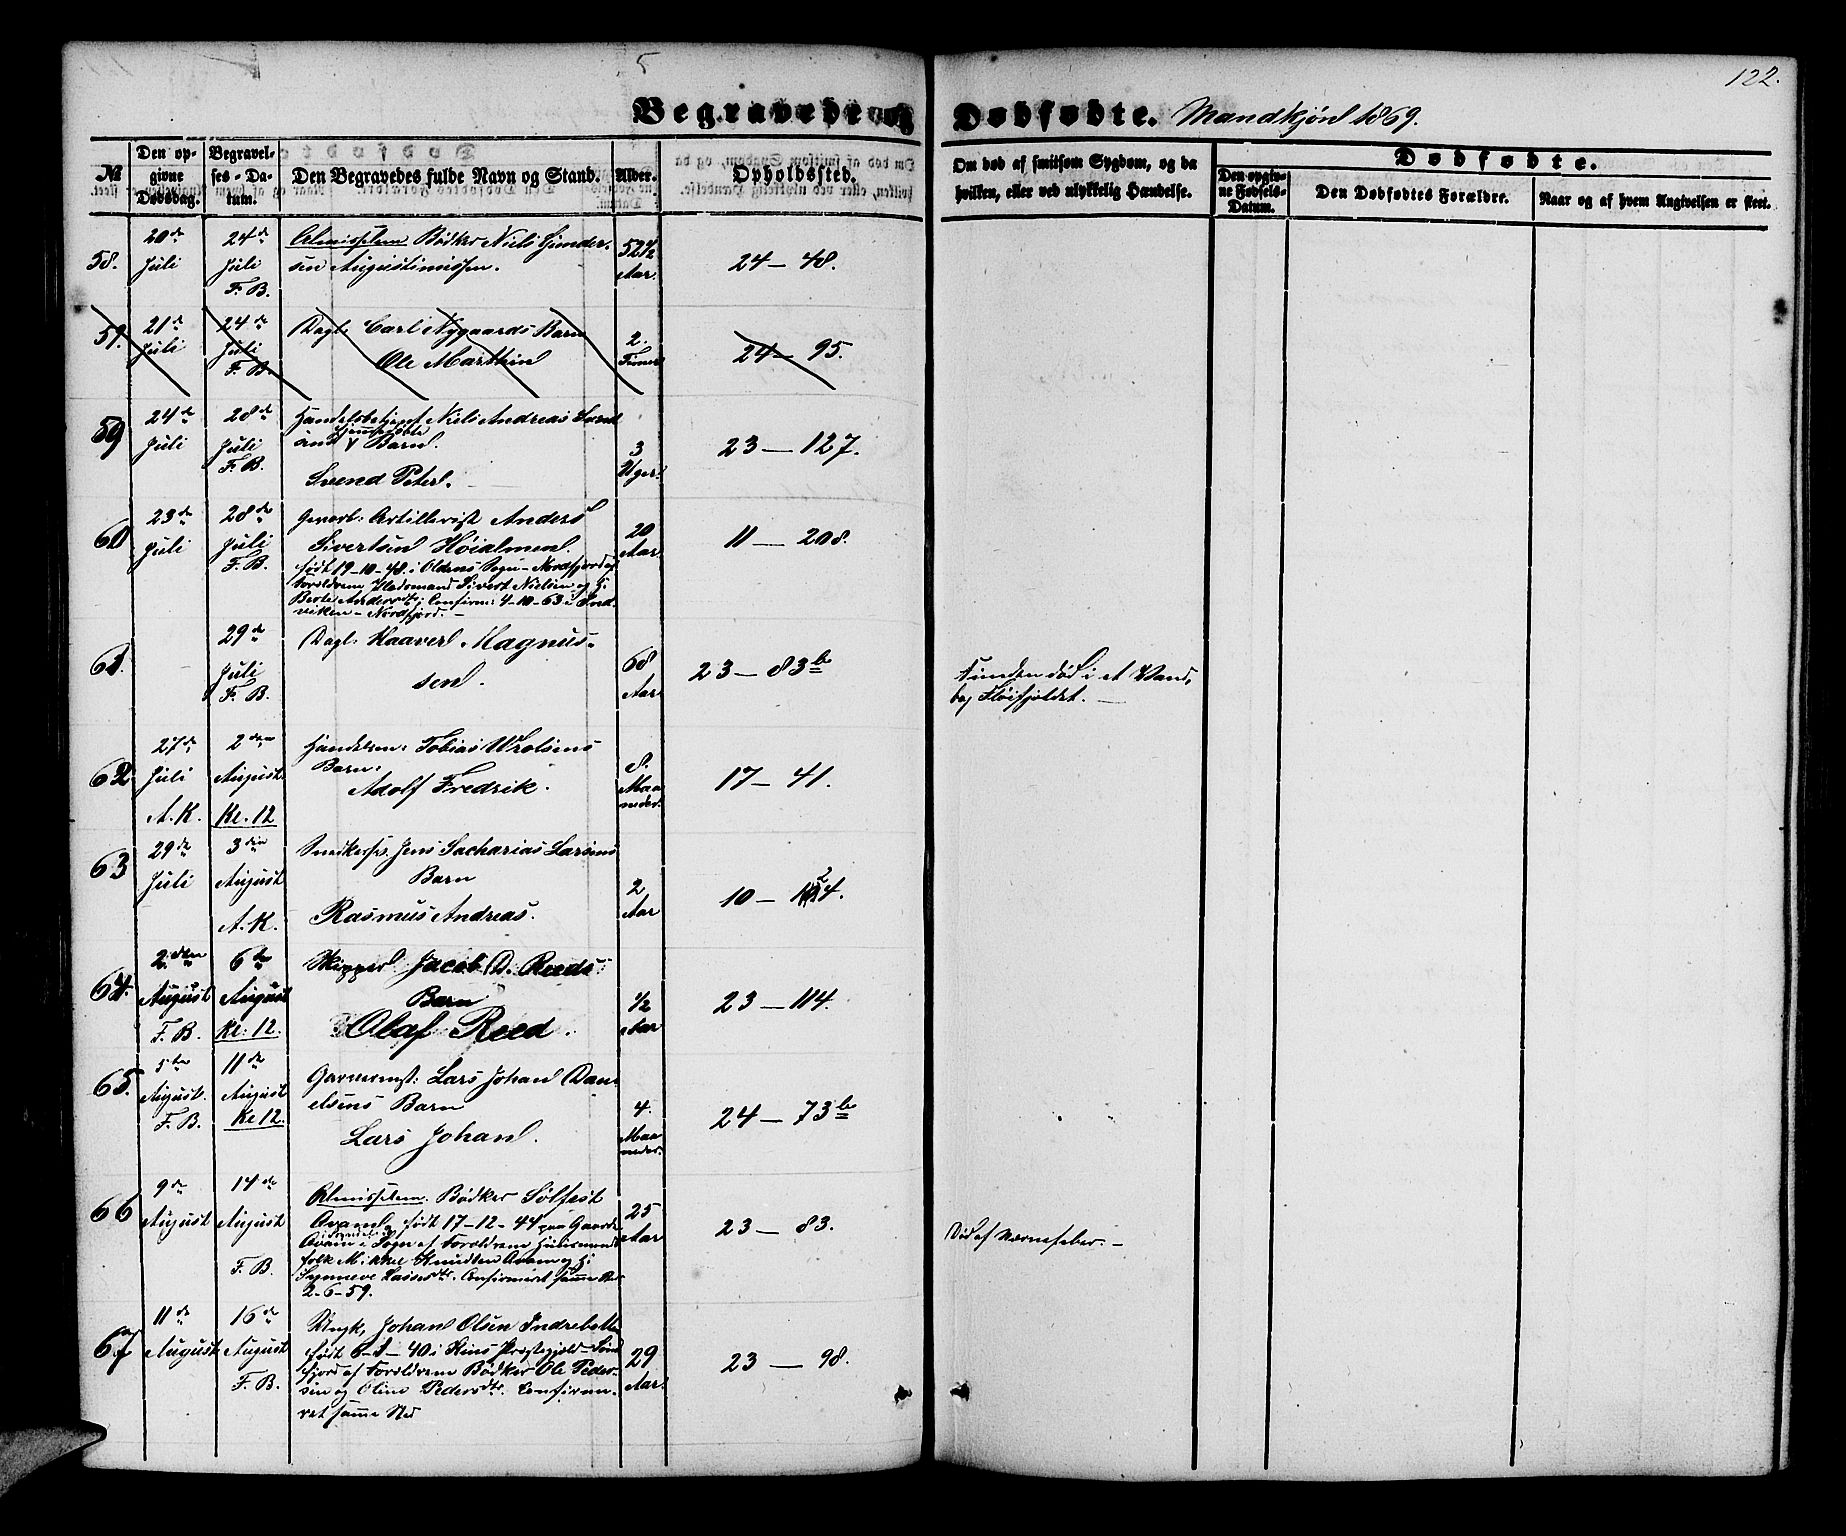 122.
5
Begravede og Dødfødte. Mandkjøn 1869.
№
Den opgivne Dødsdag.
Begravelses-Datum.
Den Begravedes fulde Navn og Stand.
Alder.
Opholdssted.
Om død af smitsom Sygdom, og da hvilken, eller ved ulykkelig Hændelse.
Dødfødte.
Den opgivne Fødsels-Datum.
Den Dødfødtes Forældre.
Naar og af hvem Angivelsen er skeet.
58.
20de Juli
24de Juli F. B.
Almisselem Bødker Niels Gunder-
sen Augustinussen.
52½ Aar.
24 — 48.
59.
21de Juli
24de Juli F. B.
Dagl: Carl Nygaards Barn
Ole Marthin
2. Timer
24 — 95.
59
24de Juli
28de Juli F. B.
Handelsbetjent Niels Andreas
Barn.
Svend Peter.
3 Uger.
23 — 127.
60
23de Juli
28de Juli F. B.
Gevorb: Artillerist Anders
Sivertsen Høialmen.
født 19-10-48. i Oldens Sogn - Nordfjord af
Forældrene Sivert Nielsen og H:
Berte Andersdtr; Confirm: 4-10-63 i Ind-
viken - Nordfjord. -
20 Aar.
11 — 208.
61.
29de Juli F. B.
Dagl: Haaver Magnus-
sen.
68 Aar.
23 — 83b
Funden død i et Vand,
bag Fløifjeldet. —
62
27de Juli A. K.
2den August. Kl. 12
Handelsm: Tobias Wrolsens
Barn.
Adolf Fredrik.
8. Maaneder.
17 — 41.
63
29de Juli
3die August A. K.
Snedkersv. Jens Sacharias Larsens
Barn
Rasmus Andreas.
2 Aar
10 — 124.
64.
2den August F. B.
6te August Kl: 12.
Skipper Jacob D. Reeds
Barn
Olaf Reed.
½ Aar
23 — 114.
65.
5te August. F. B.
11de August Kl 12.
Garverms: Lars Johan Dani-
elsens Barn
Lars Johan.
4. Maaneder.
24 — 73b
66
9de August
14de August F. B.
Almisselem. Bødker Sølfest
Avam, født 17-12-44 paa Gaarde
Avam i Sogn af Forældrene Huusmands
folk Mikkel Knudsen Avam og H:
Synneve Lassesdtr. Confirmeret samme Sted
2-6-59.
25 Aar
23 — 83.
Død af Nervefeber. —
67
11de August
16de August F. B.
Ungk, Johan Olsen Indrebotten
født 6-1-40 i Kins Prestegjeld - Sønd
fjord af Forældrene Bødker Ole Peder-
sen og Oline Pedersdtr. Confirme-
ret samme Sted
29 Aar.
23 — 98.